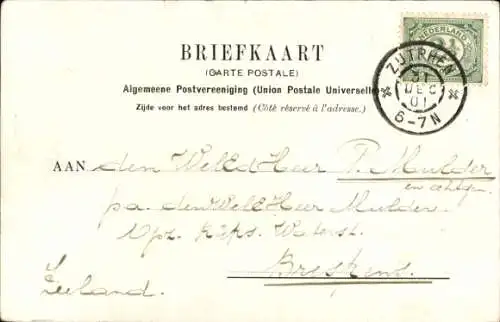 BRIEFKAART
(CARTE POSTALE)
Algemeene Postvereeniging (Union Postale Universelle)
Zijde voor het adres bestemd (Côté réservé à l'adresse.)
NEDERLAND
ZUTPHEN
31
DEC
01
6-7N
AAN den WelEdHeer P. Mulder
en echtgen.
p/a. den WelEdHeer Mulder.
Opz. Rijks Waterst.
Breskens.
Zeeland.